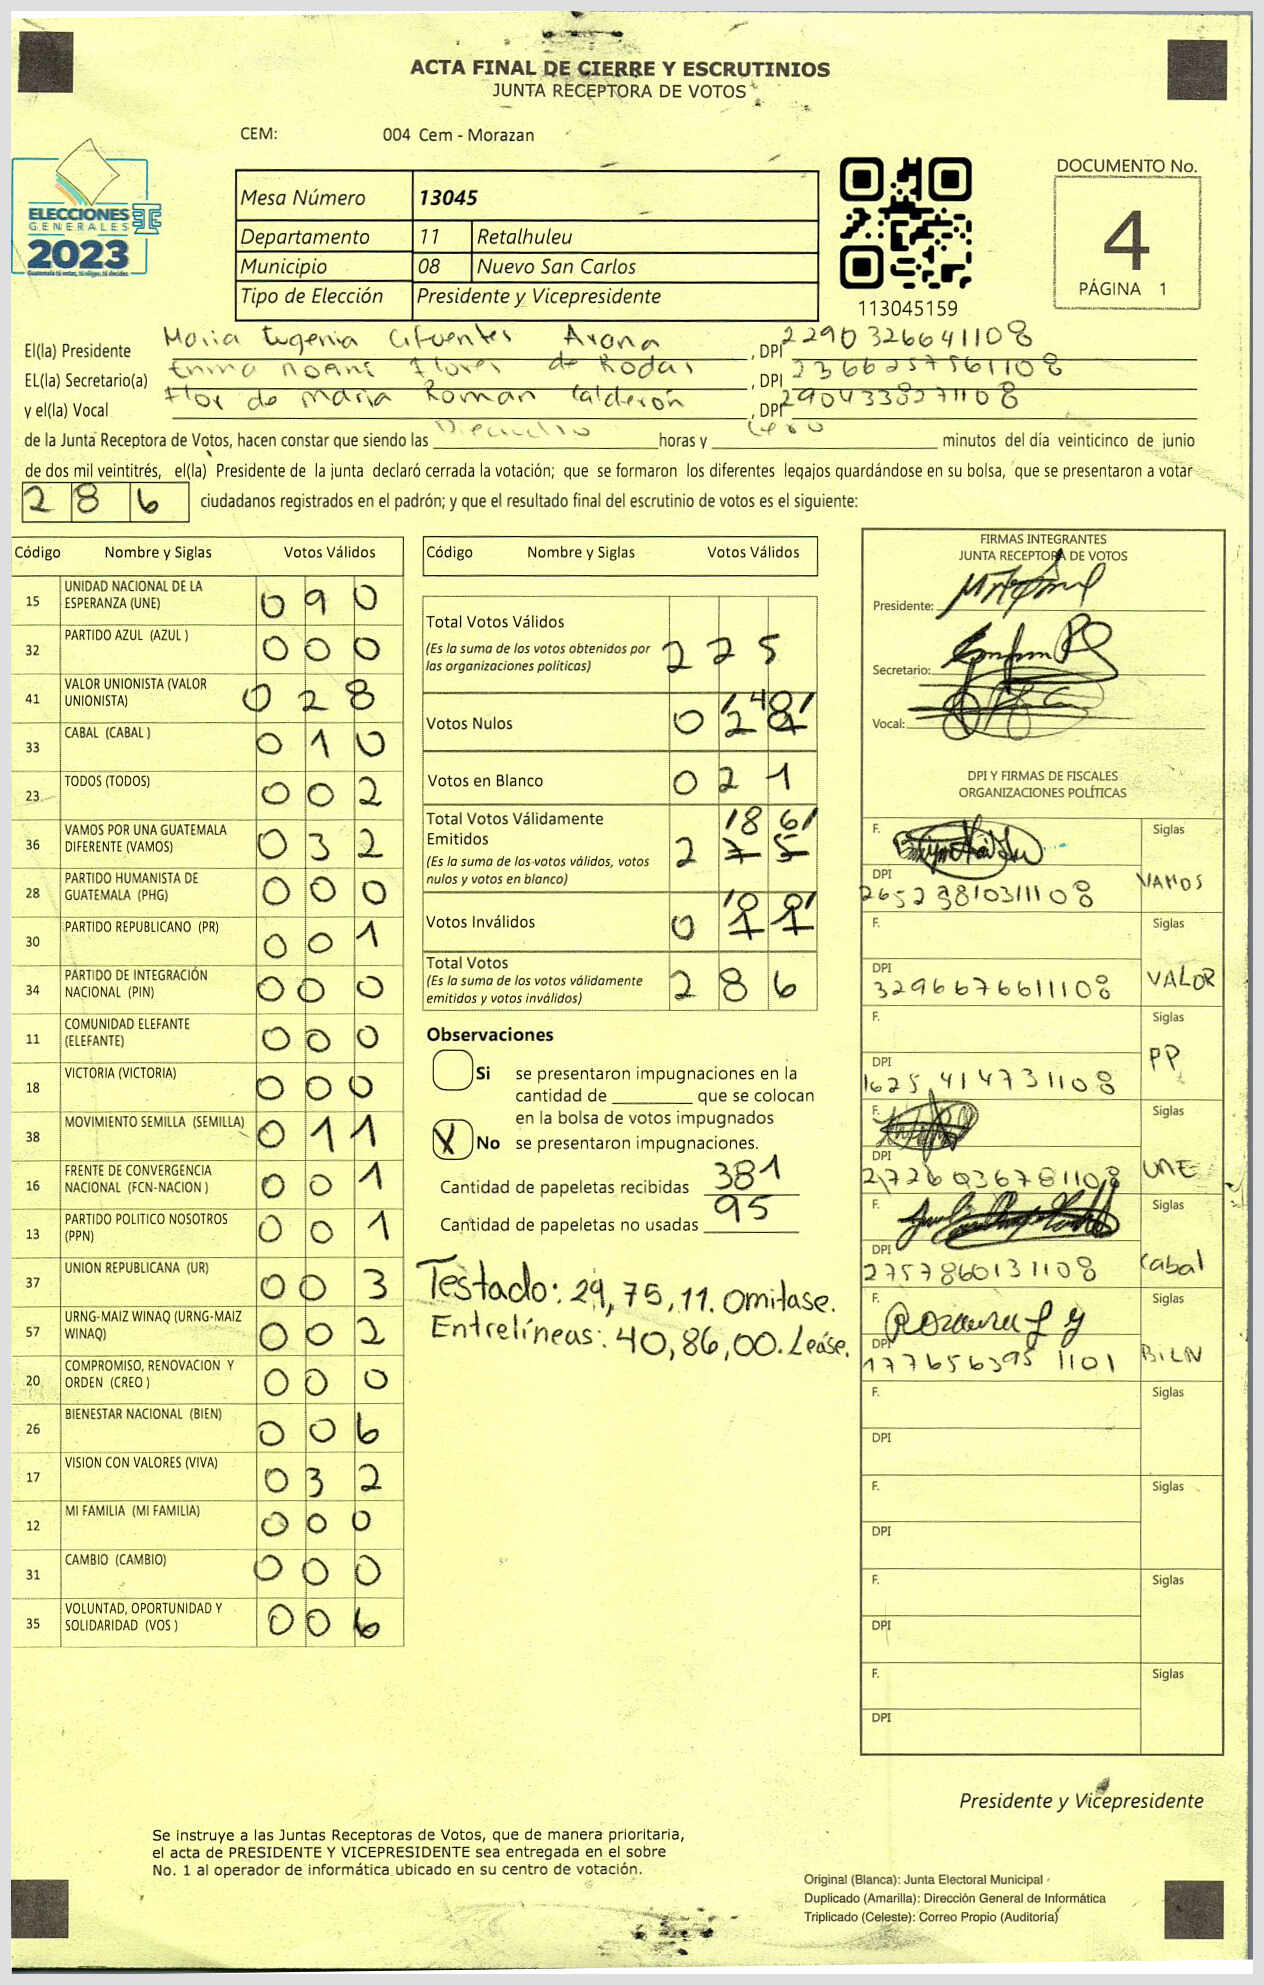 ACTA FINAL DE CIERRE Y ESCRUTINIOS
JUNTA RECEPTORA DE VOTOS
CEM: 004 Cem - Morazan
ELECCIONES
GENERALES
2023
Guatemala tú votas, tú eliges, tú decides
Mesa Número 13045
Departamento 11 Retalhuleu
Municipio 08 Nuevo San Carlos
Tipo de Elección Presidente y Vicepresidente
113045159
DOCUMENTO No.
4
PÁGINA 1
El(la) Presidente Maria Eugenia Cifuentes Arana , DPI 2290326641108
EL(la) Secretario(a) Emma Noemi Flores de Rodas , DPI 2366257561108
y el(la) Vocal Flor de Maria Roman Calderón , DPI 2904338271108
de la Junta Receptora de Votos, hacen constar que siendo las Dieciocho horas y cero minutos del día veinticinco de junio
de dos mil veintitrés, el(la) Presidente de la junta declaró cerrada la votación; que se formaron los diferentes legajos quardándose en su bolsa, que se presentaron a votar
286 ciudadanos registrados en el padrón; y que el resultado final del escrutinio de votos es el siguiente:
Código Nombre y Siglas Votos Válidos
15 UNIDAD NACIONAL DE LA ESPERANZA (UNE) 090
32 PARTIDO AZUL (AZUL ) 000
41 VALOR UNIONISTA (VALOR UNIONISTA) 028
33 CABAL (CABAL ) 010
23 TODOS (TODOS) 002
36 VAMOS POR UNA GUATEMALA DIFERENTE (VAMOS) 032
28 PARTIDO HUMANISTA DE GUATEMALA (PHG) 000
30 PARTIDO REPUBLICANO (PR) 001
34 PARTIDO DE INTEGRACIÓN NACIONAL (PIN) 000
11 COMUNIDAD ELEFANTE (ELEFANTE) 000
18 VICTORIA (VICTORIA) 000
38 MOVIMIENTO SEMILLA (SEMILLA) 011
16 FRENTE DE CONVERGENCIA NACIONAL (FCN-NACION ) 001
13 PARTIDO POLITICO NOSOTROS (PPN) 001
37 UNION REPUBLICANA (UR) 003
57 URNG-MAIZ WINAQ (URNG-MAIZ WINAQ) 002
20 COMPROMISO, RENOVACION Y ORDEN (CREO ) 000
26 BIENESTAR NACIONAL (BIEN) 006
17 VISION CON VALORES (VIVA) 032
12 MI FAMILIA (MI FAMILIA) 000
31 CAMBIO (CAMBIO) 000
35 VOLUNTAD, OPORTUNIDAD Y SOLIDARIDAD (VOS ) 006
Código Nombre y Siglas Votos Válidos
Total Votos Válidos 225
(Es la suma de los votos obtenidos por
las organizaciones políticas)
Votos Nulos 0 /40/
Votos en Blanco 021
Total Votos Válidamente
Emitidos 2 /86/ 75
(Es la suma de los votos válidos, votos
nulos y votos en blanco)
Votos Inválidos 0 /00/ 11
Total Votos 286
(Es la suma de los votos válidamente
emitidos y votos inválidos)
Observaciones
Si se presentaron impugnaciones en la
cantidad de ________ que se colocan
en la bolsa de votos impugnados
X No se presentaron impugnaciones.
Cantidad de papeletas recibidas 381
Cantidad de papeletas no usadas 95
Testado: 29, 75, 11. Omitase.
Entrelíneas: 40, 86, 00. Leáse.
FIRMAS INTEGRANTES
JUNTA RECEPTORA DE VOTOS
Presidente:
Secretario:
Vocal:
DPI Y FIRMAS DE FISCALES
ORGANIZACIONES POLÍTICAS
F. Siglas
DPI 2652381031108 VAMOS
F. Siglas
DPI 3296676611108 VALOR
F. Siglas
DPI 1625414731108 PP
F. Siglas
DPI 2726036781108 UNE
F. Siglas
DPI 2757860131108 Cabal
F. Siglas
DPI 1776563951101 BIEN
F. Siglas
DPI
F. Siglas
DPI
F. Siglas
DPI
F. Siglas
DPI
Presidente y Vicepresidente
Se instruye a las Juntas Receptoras de Votos, que de manera prioritaria,
el acta de PRESIDENTE Y VICEPRESIDENTE sea entregada en el sobre
No. 1 al operador de informática ubicado en su centro de votación.
Original (Blanca): Junta Electoral Municipal
Duplicado (Amarilla): Dirección General de Informática
Triplicado (Celeste): Correo Propio (Auditoría)